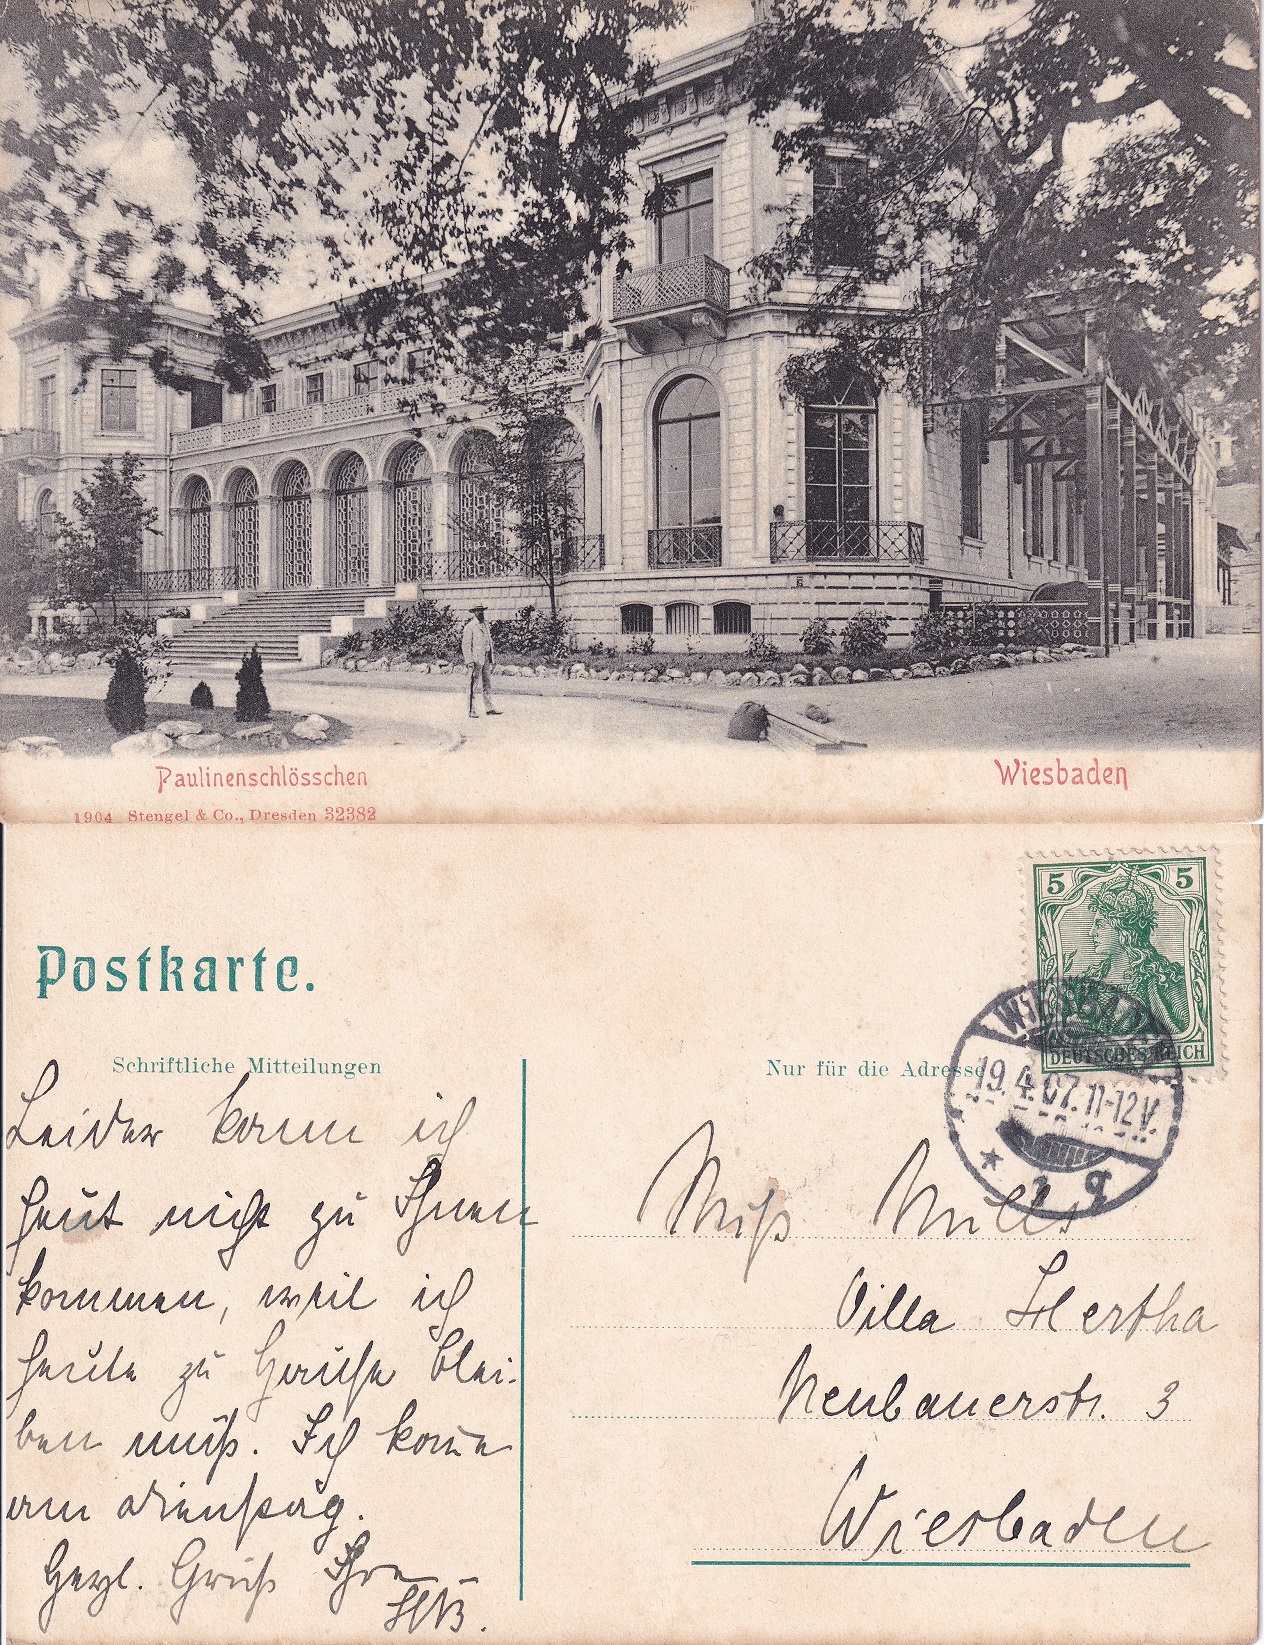 Paulinenschlösschen
Wiesbaden
1904 Stengel & Co., Dresden 32382
5 5
DEUTSCHES REICH
WIESBADEN
19.4.07.11-12V.
* 1 g
Postkarte.
Schriftliche Mitteilungen
Nur für die Adresse
Leider kann ich
heut nicht zu Ihnen
kommen, weil ich
heute zu Hause blei-
ben muß. Ich kome
am Dienstag.
Herzl. Gruß Ihre
Miß Mills
Villa Hertha
Neubauerstr. 3
Wiesbaden